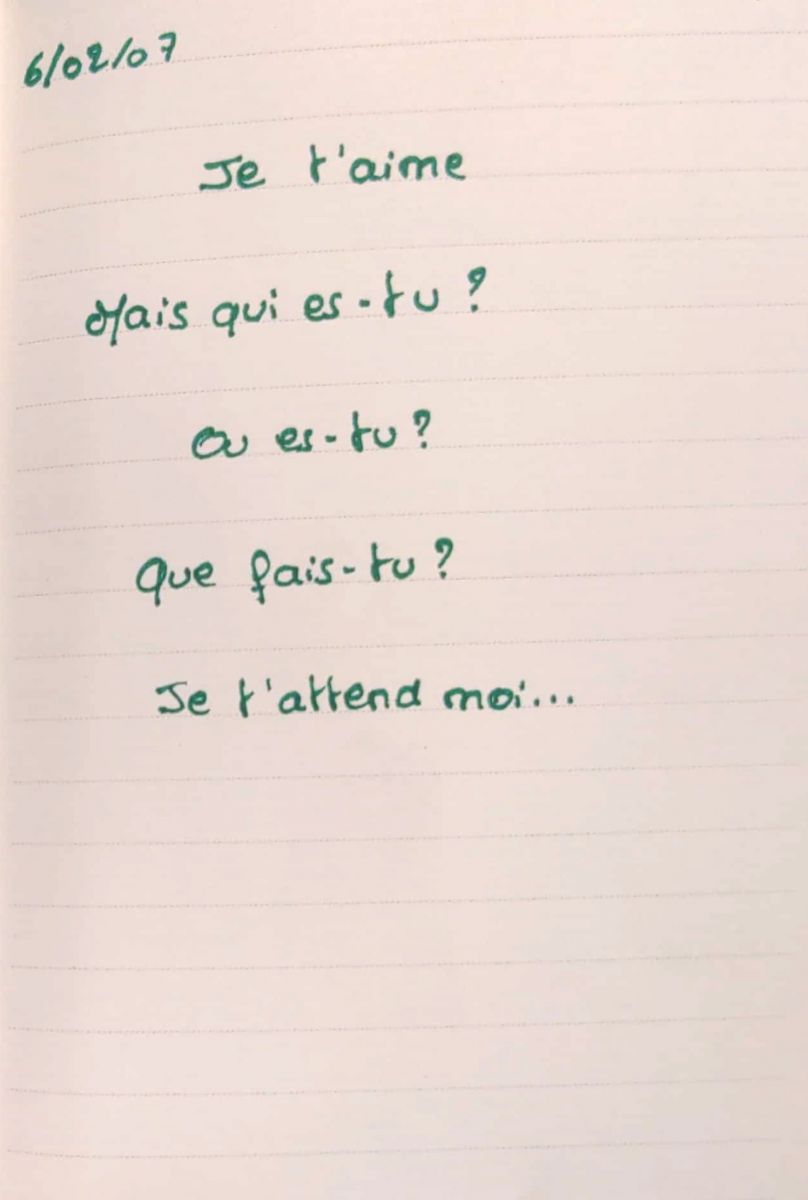 6/02/07
Je t'aime
Mais qui es-tu ?
Ou es-tu ?
Que fais-tu ?
Je t'attend moi...